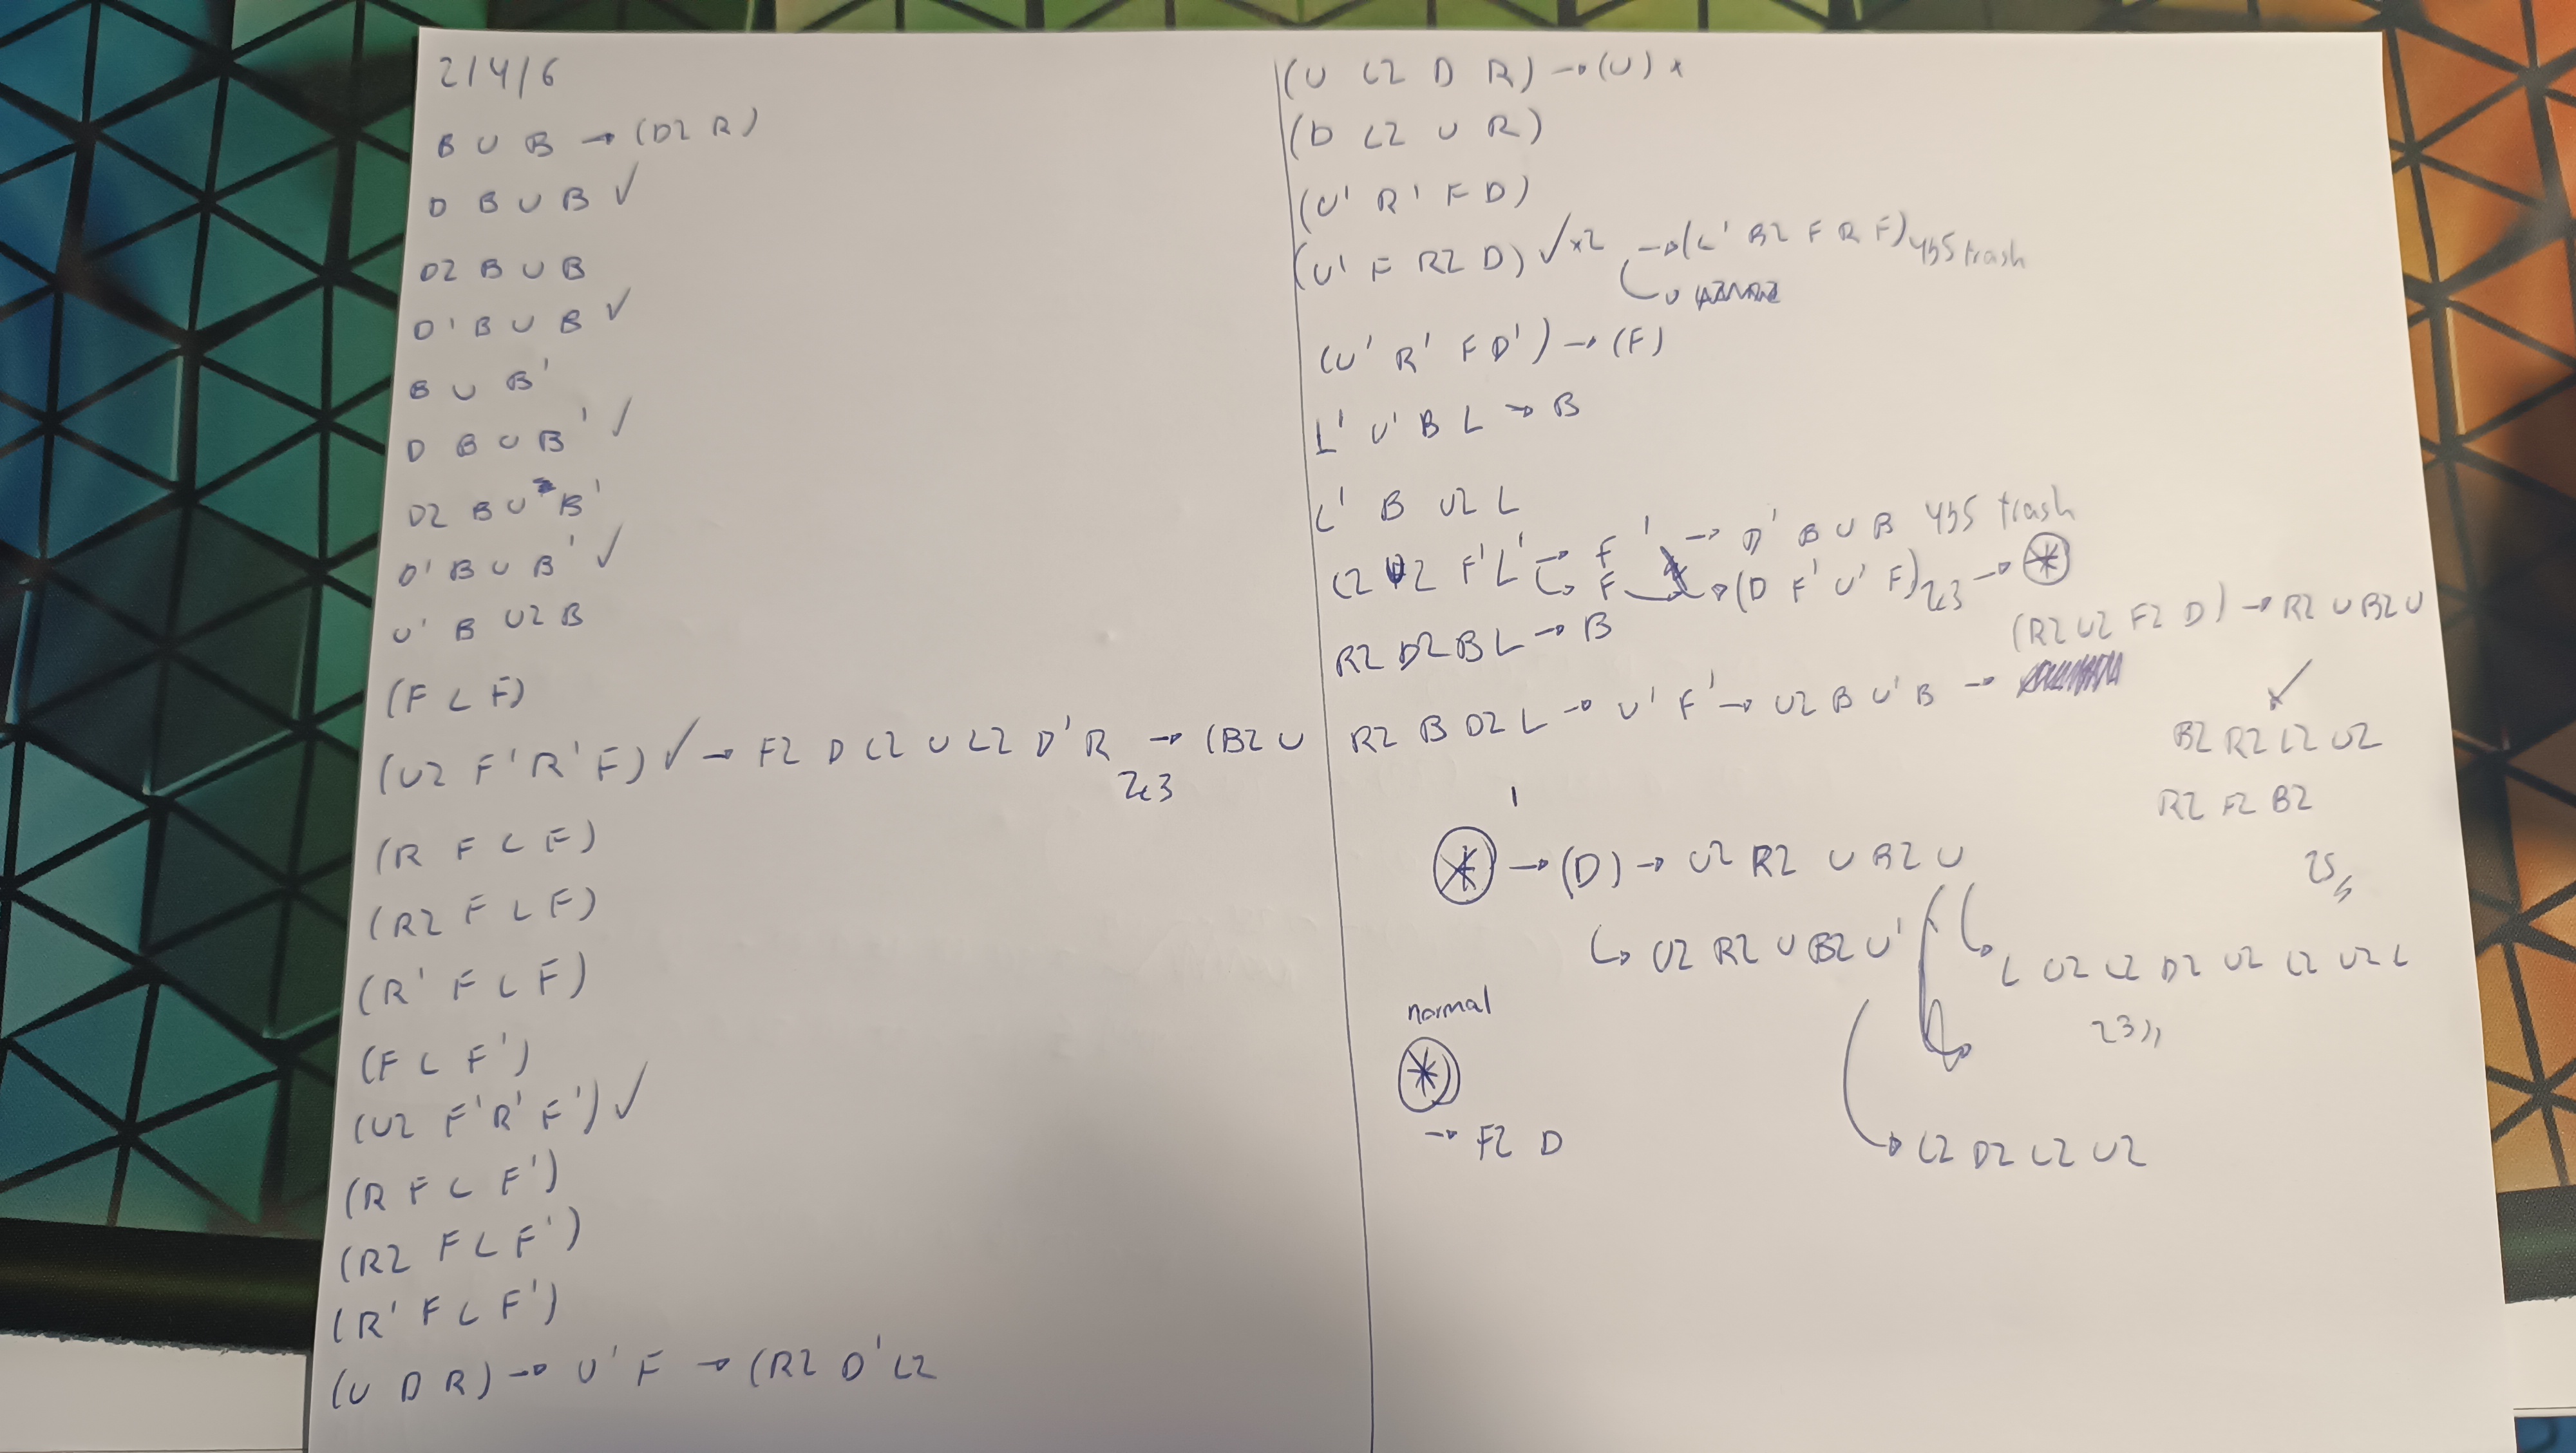 2/4/6
B U B → (D2 R)
D B U B ✓
D2 B U B
D' B U B ✓
B U B'
D B U B' ✓
D2 B U B'
D' B U B' ✓
U' B U2 B
(F L F)
(U2 F' R' F) ✓ → F2 D L2 U L2 D' R → (B2 U
2c3
(R F L F)
(R2 F L F)
(R' F L F)
(F L F')
(U2 F' R' F') ✓
(R F L F')
(R2 F L F')
(R' F L F')
(U D R) → U' F → (R2 D' L2
(U L2 D R) → (U) *
(D L2 U R)
(U' R' F D)
(U' F R2 D) ✓x2 → (L' B2 F R F) 4b5 trash
(U' R' F D') → (F)
L' U' B L → B
L' B U2 L
L2 D2 F' L' → F' → D' B U B 4b5 trash
F → (D F' U' F) 2c3 → *
R2 D2 B L → B
(R2 U2 F2 D) → R2 U B2 U
R2 B D2 L → U' F' → U2 B U' B →
✓
B2 R2 L2 U2
R2 F2 B2
25
* → (D) → U2 R2 U B2 U
U2 R2 U B2 U'
L U2 L2 D2 U2 L2 U2 L
23
normal
*
→ F2 D
L2 D2 L2 U2